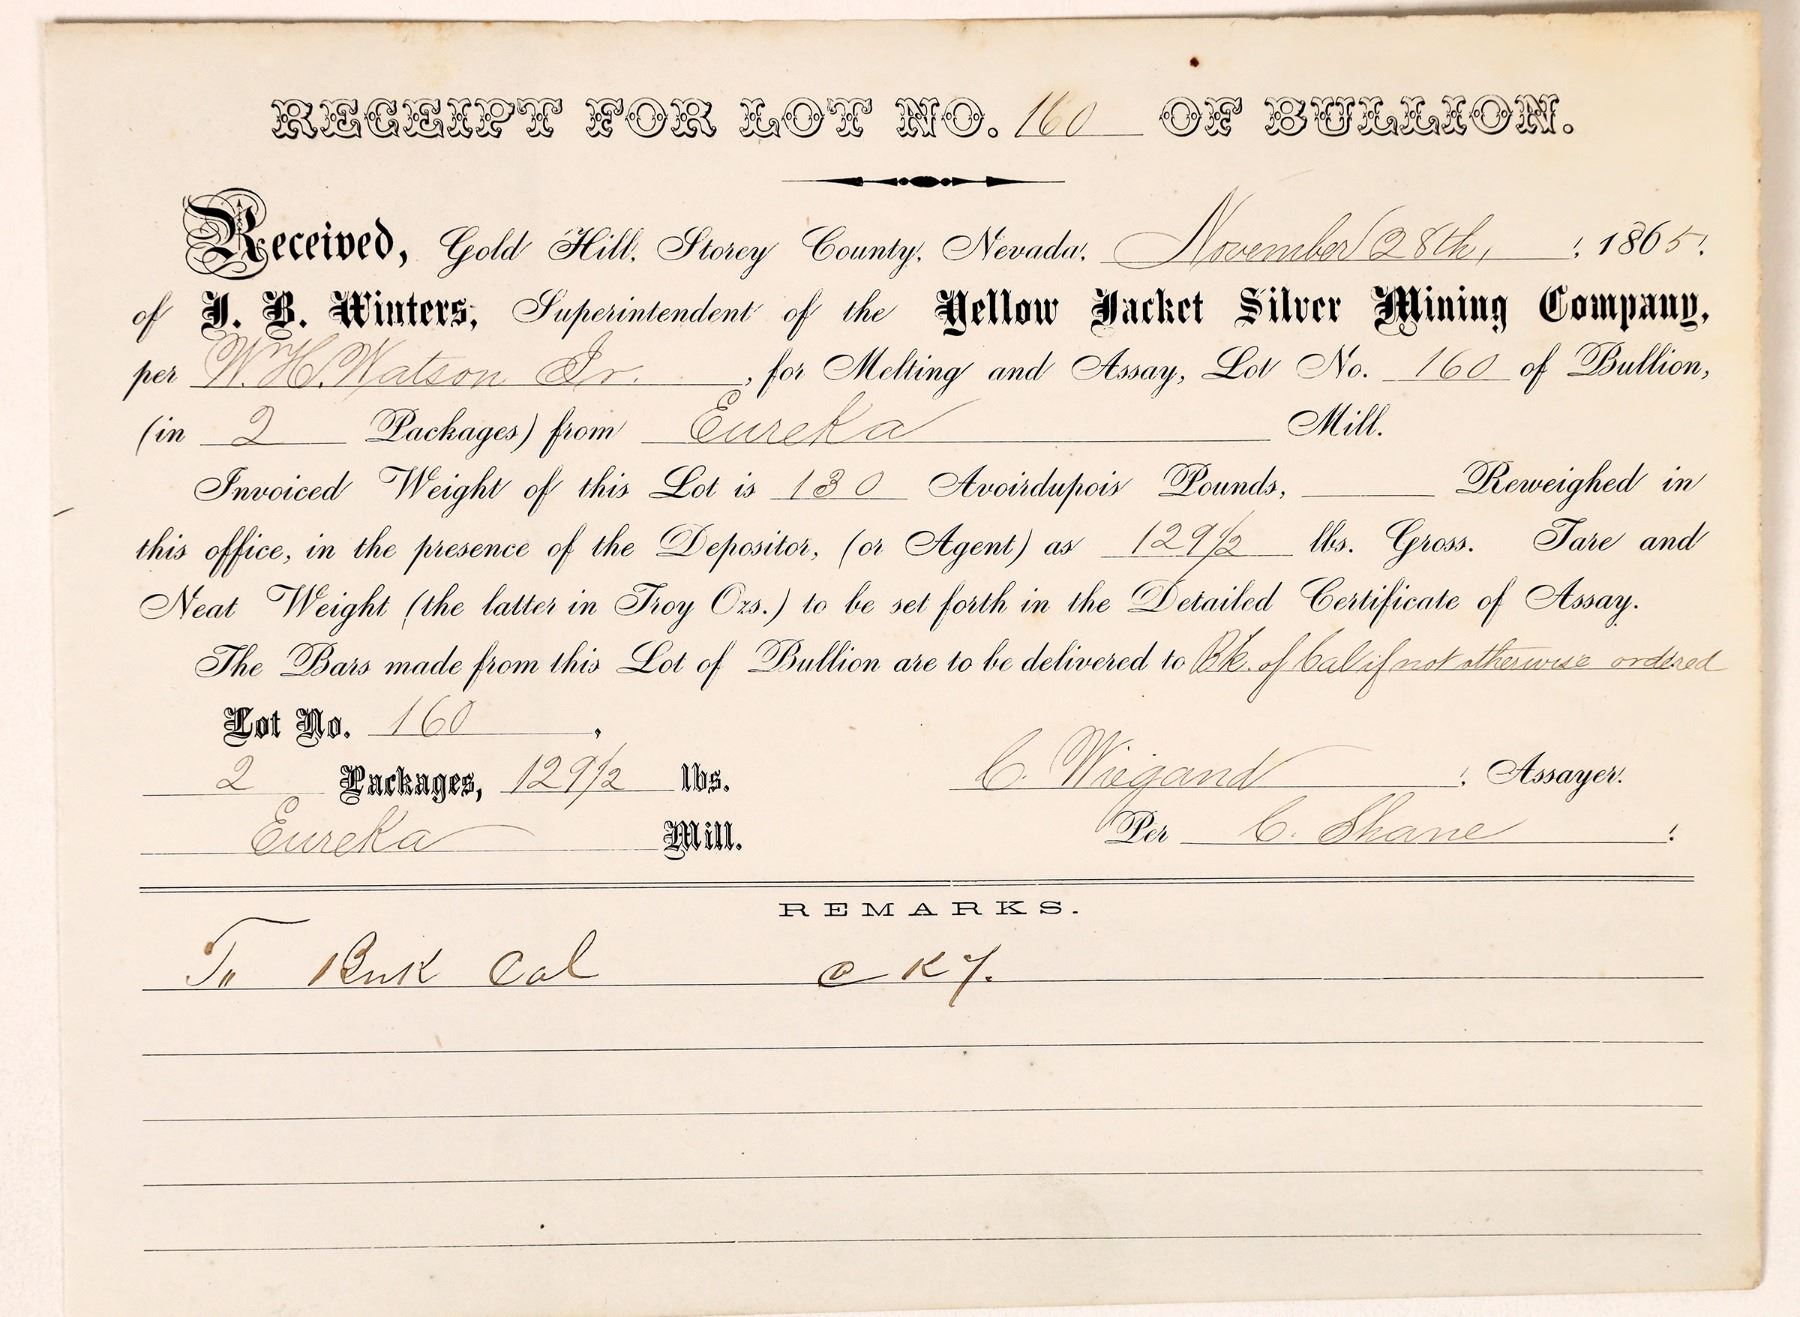 RECEIPT FOR LOT NO. 160 OF BULLION.
Received, Gold Hill, Storey County, Nevada, November 28th, , 1865.
of J. B. Winters, Superintendent of the Yellow Jacket Silver Mining Company,
per W. H. Watson Jr. , for Melting and Assay, Lot No. 160 of Bullion,
(in 2 Packages) from Eureka Mill.
Invoiced Weight of this Lot is 130 Avoirdupois Pounds, Reweighed in
this office, in the presence of the Depositor, (or Agent) as 129 1/2 lbs. Gross. Tare and
Neat Weight (the latter in Troy Ozs.) to be set forth in the Detailed Certificate of Assay.
The Bars made from this Lot of Bullion are to be delivered to Bk. of Cal if not otherwise ordered
Lot No. 160 ,
2 Packages, 129 1/2 lbs.
C. Wiegand , Assayer.
Eureka Mill.
Per C. Shane .
REMARKS.
To Bnk Cal